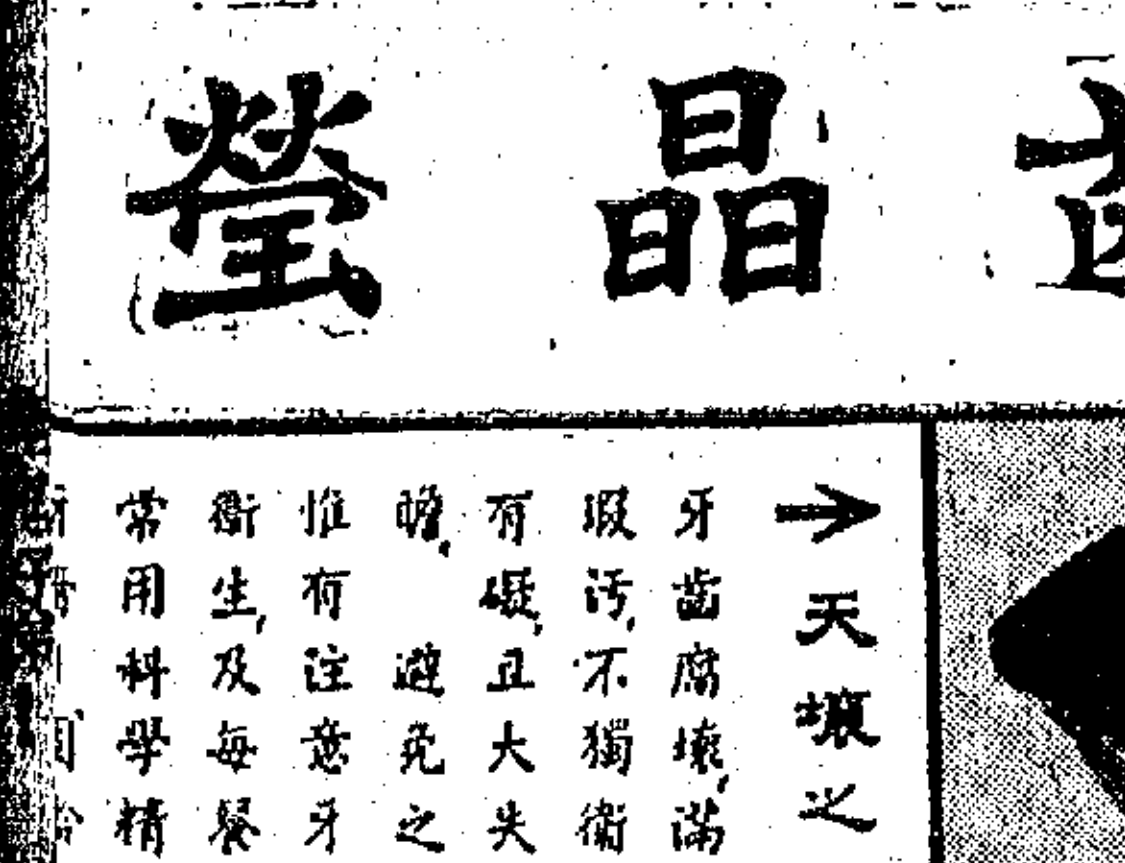 齒晶瑩
→天壤之
牙齒腐壞,滿
瑕污,不獨衛
有礙,且大失
瞻,避免之
惟有注意牙
衛生,及每餐
常用科學精